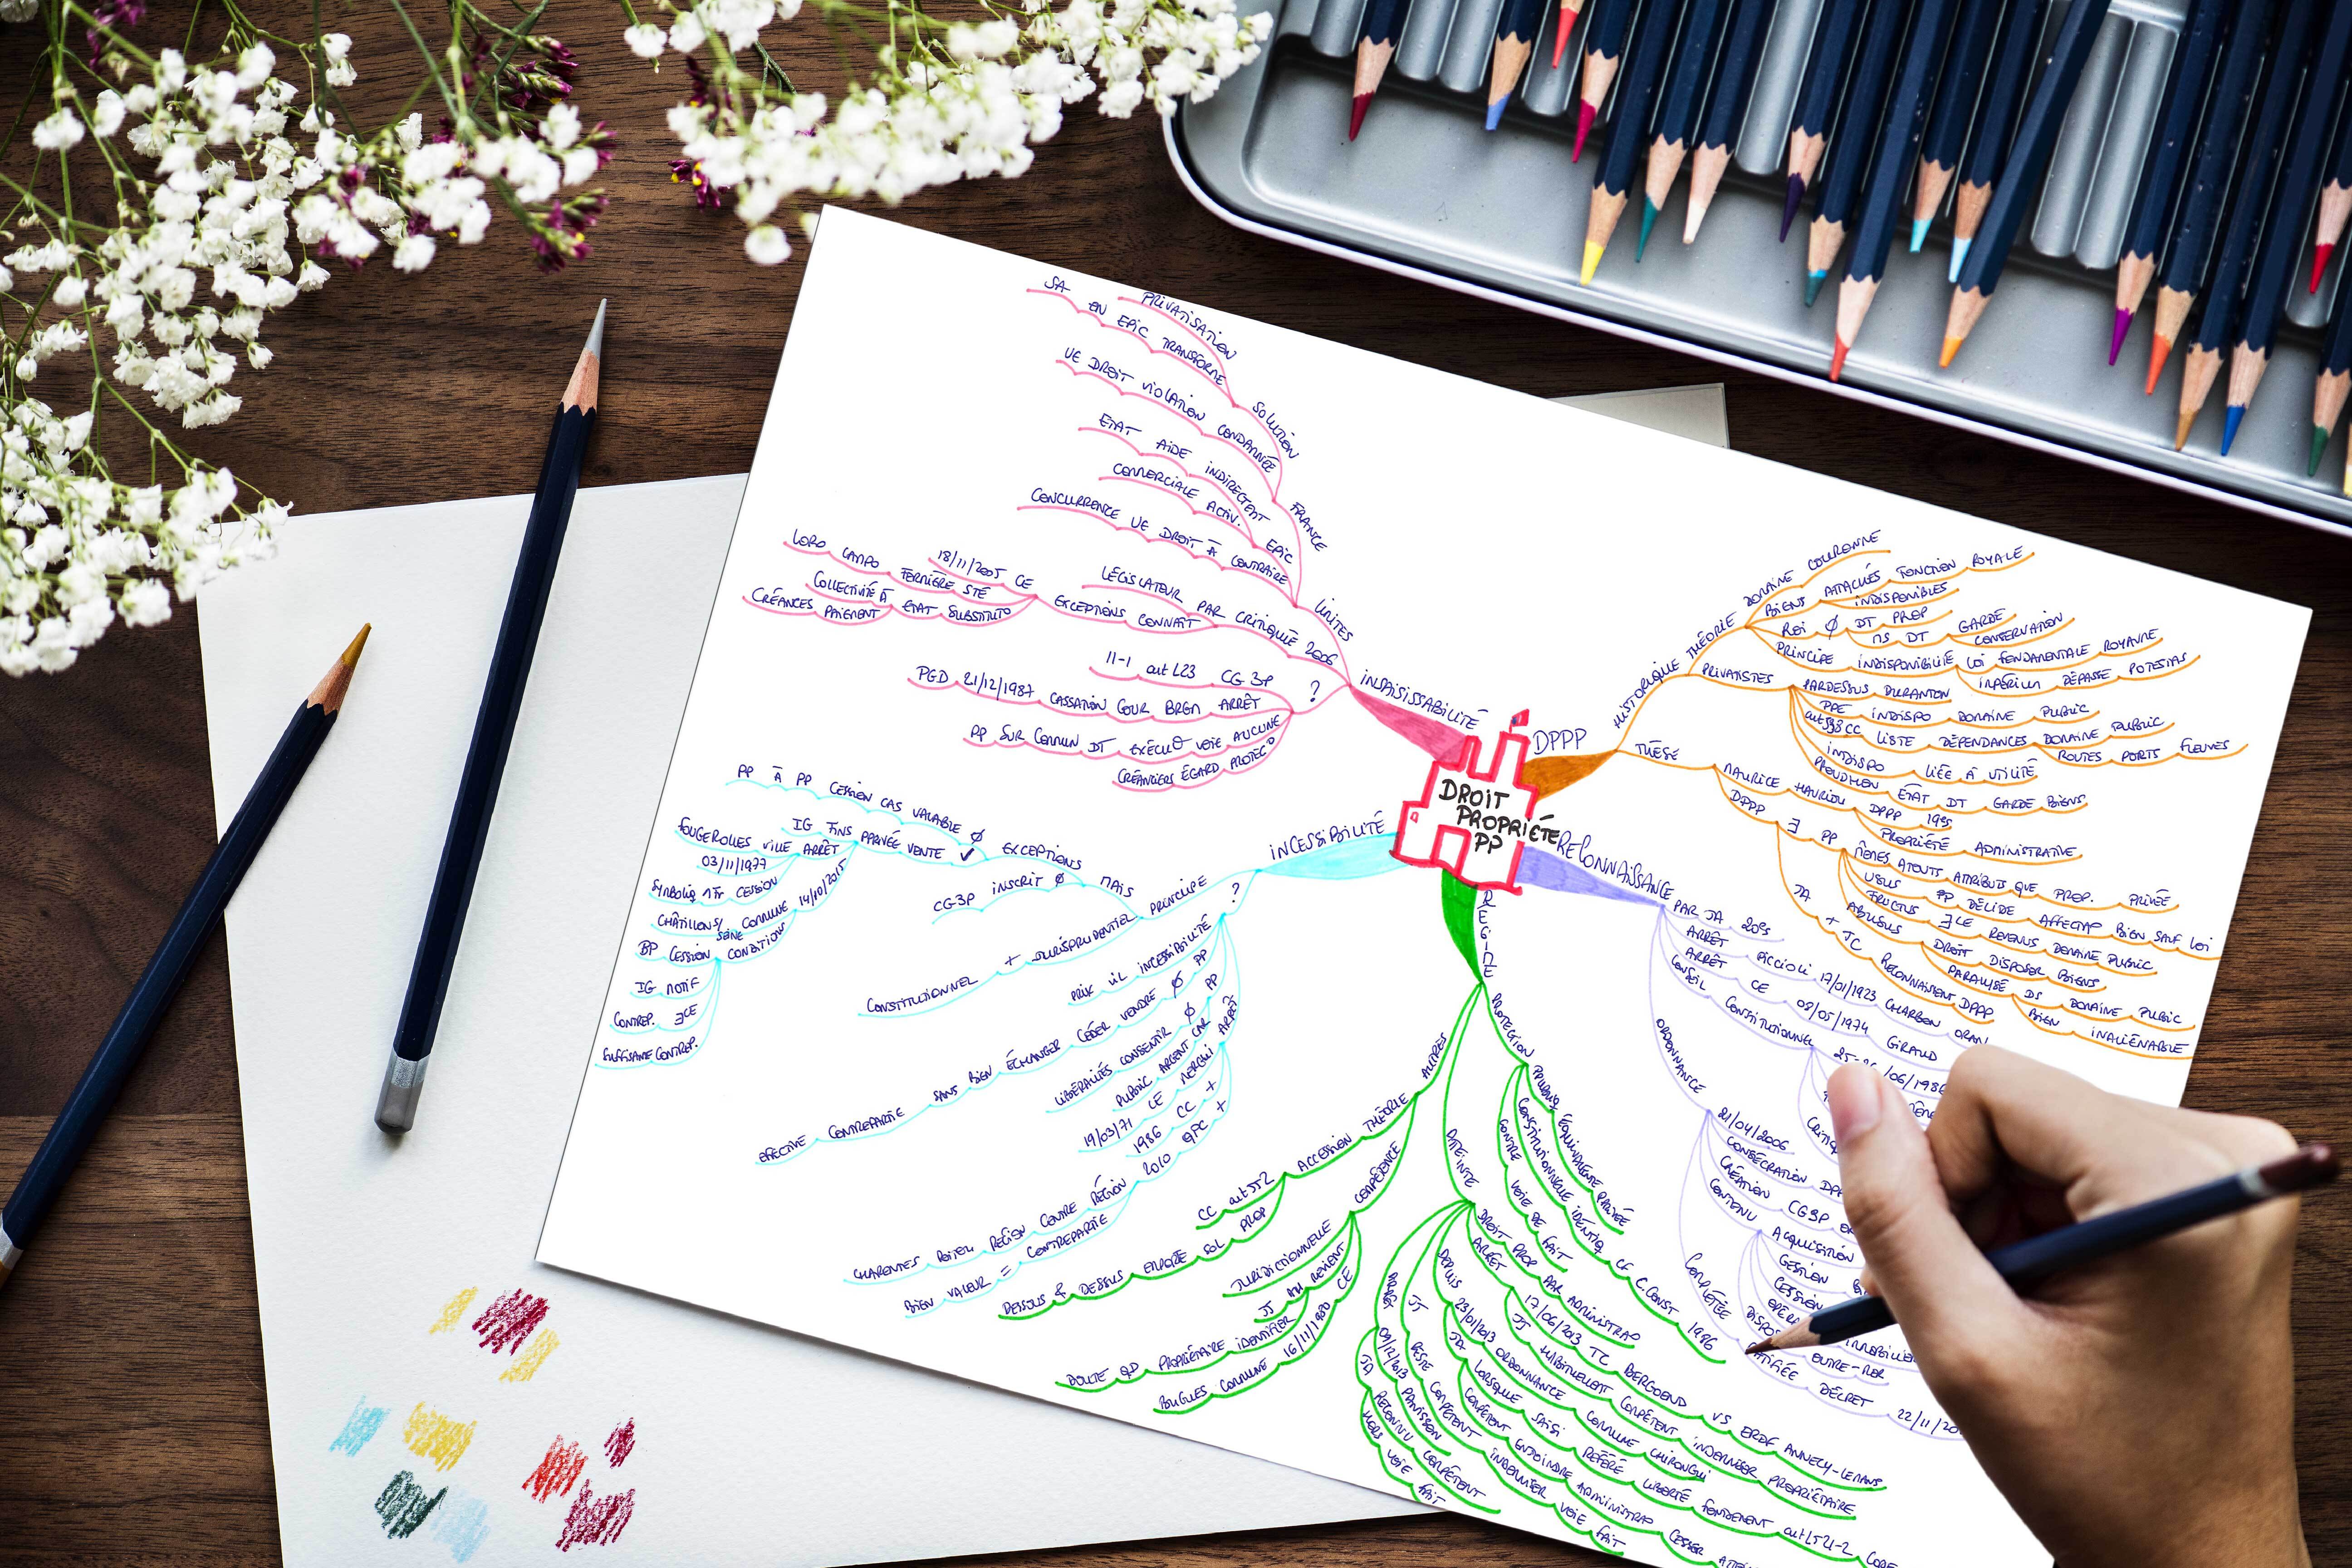 DROIT
PROPRIÉTÉ
PP
INSAISISSABILITÉ
LIMITES
FRANCE
SOLUTION
PRIVATISATION
SA EN EPIC TRANSFORME
UE DROIT VIOLATION CONDAMNÉE
ETAT AIDE INDIRECTEMENT EPIC
COMMERCIALE ACTIV.
CONCURRENCE UE DROIT À CONTRAIRE
LÉGISLATEUR PAR CRITIQUÉE 2006
EXCEPTIONS CONNAÎT
18/11/2005 CE
LORD CAMPO FERMIÈRE STÉ
COLLECTIVITÉ À ETAT SUBSTITUTO
CRÉANCES PAIEMENT
?
11-1 art L23 CG3P
PGD 21/12/1987 CASSATION COUR BRGM ARRÊT
PP SUR COMMUN DT EXÉCUTO VOIE AUCUNE
CRÉANCIERS ÉGARD PROTEC°
INCESSIBILITÉ
PRINCIPE
MAIS
EXCEPTIONS
PP À PP CESSION CAS VALABLE Ø
IG FINS PPRIVÉE VENTE ✓
FOUGEROLLES VILLE ARRÊT
03/11/1977
SYMBOLIQ CESSION
CHÂTILLON S/ SEINE COMMUNE 14/10/2015
BP CESSION CONDITIONS
IG MOTIF
CONTREP. ∃CE
SUFFISANTE CONTREP.
CG3P INSCRIT Ø
CONSTITUTIONNEL + JURISPRUDENTIEL
?
PRIX VIL INCESSIBILITÉ
EFFECTIVE CONTREPARTIE SANS BIEN ÉCHANGER CÉDER VENDRE Ø PP
LIBÉRALITÉS CONSENTIR Ø PP
PUBLIC ARGENT CAR ARRÊT
19/03/71 CE MERGUI
1986 CC +
2010 QPC +
CHARENTES POITOU RÉGION CENTRE RÉGION
BIEN VALEUR = CONTREPARTIE
DPPP
HISTORIQUE THÉORIE
DOMAINE COURONNE
BIENS ATTACHÉS FONCTION ROYALE
INDISPONIBLES
ROI Ø DT PROP
MS DT GARDE
CONSERVATION
PRINCIPE INDISPONIBILITÉ LOI FONDAMENTALE ROYAUME
IMPÉRIUM DÉPASSE POTESTAS
PRIVATISTES
PARDESSUS DURANTON
PPE INDISPO DOMAINE PUBLIC
art 538 CC LISTE DÉPENDANCES DOMAINE PUBLIC
ROUTES PORTS FLEUVES
INDISPO LIÉE À UTILITÉ
PROUDHON ÉTAT DT GARDE BIENS
THÈSE
MAURICE HAURIOU DPPP
PROPRIÉTÉ ADMINISTRATIVE
DPPP ∃ PP MÊMES ATOUTS ATTRIBUTS QUE PROP. PRIVÉE
USUS PP DÉCIDE AFFECTAO BIEN SAUF LOI
FRUCTUS ∃CE REVENUS DOMAINE PUBLIC
ABUSUS DROIT DISPOSER BIENS
PARALYSÉ DS DOMAINE PUBLIC
BIEN INALIÉNABLE
JA + JC RECONNAISSENT DPPP
RECONNAISSANCE
PAR JA
ARRÊT PICCIOLI 17/01/1923 CHARBON ORAN
ARRÊT CE 08/05/1974 GIRAUD
CONSEIL CONSTITUTIONNEL 25-26/06/1986
ORDONNANCE
21/04/2006
CONSÉCRATION DPPP
CRÉATION CG3P
CONTENU ACQUISITION
GESTION
CESSION
OUTRE-MER
COMPLÉTÉE
DÉCRET 22/11/20
REGIME
PROTECTION
PPUBLIQ ÉQUIVALENTE PRIVÉE
CONSTITUTIONNELLE IDENTIQ CF C.CONST 1986
CONTRE VOIE DE FAIT
ATTEINTE
DROIT PROP PAR ADMINISTRAO
ARRÊT 17/06/2013 TC BERGOEND VS ERDF ANNECY-LEMANS
JJ HABITUELLEMT COMPÉTENT INDEMNISER PROPRIÉTAIRE
DEPUIS 23/01/2013 ORDONNANCE COMMUNE CHIRONGUI
JA LORSQUE SAISI RÉFÉRÉ LIBERTÉ FONDEMENT art L521-2
COMPÉTENT ENJOINDRE ADMINISTRAO CESSER
JJ RESTE COMPÉTENT INDEMNISER VOIE FAIT
09/12/2013 PANISSON
JA RECONNU COMPÉTENT
HORS VOIE FAIT
AUTRES
ACCESSION THÉORIE
CC art 552
DESSOUS & DESSUS EMPORTE SOL PROP
COMPÉTENCE
JURIDICTIONNELLE
JJ AU REVIENT
DOUTE QD PROPRIÉTAIRE IDENTIFIER
BOUGLES COMMUNE 16/11/1980 CE